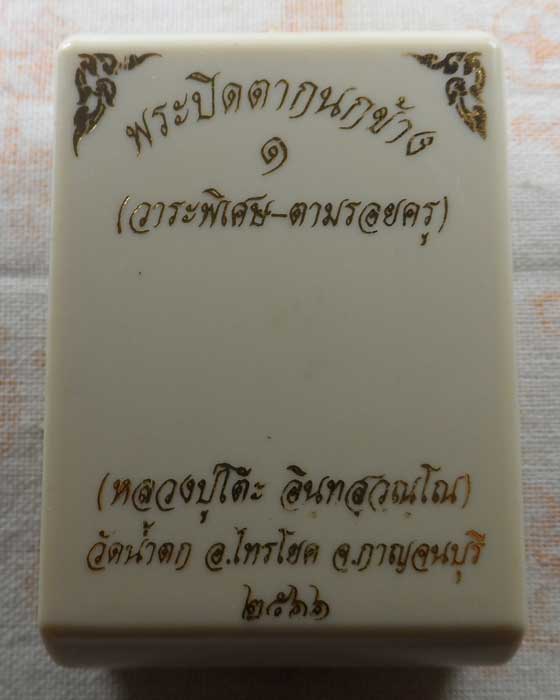 พระปิดตากนกข้าง
๑
(วาระพิเศษ-ตามรอยครู)
(หลวงปู่โต๊ะ อินทสุวณฺโณ)
วัดน้ำตก อ.ไทรโยค จ.กาญจนบุรี
๒๕๑๑